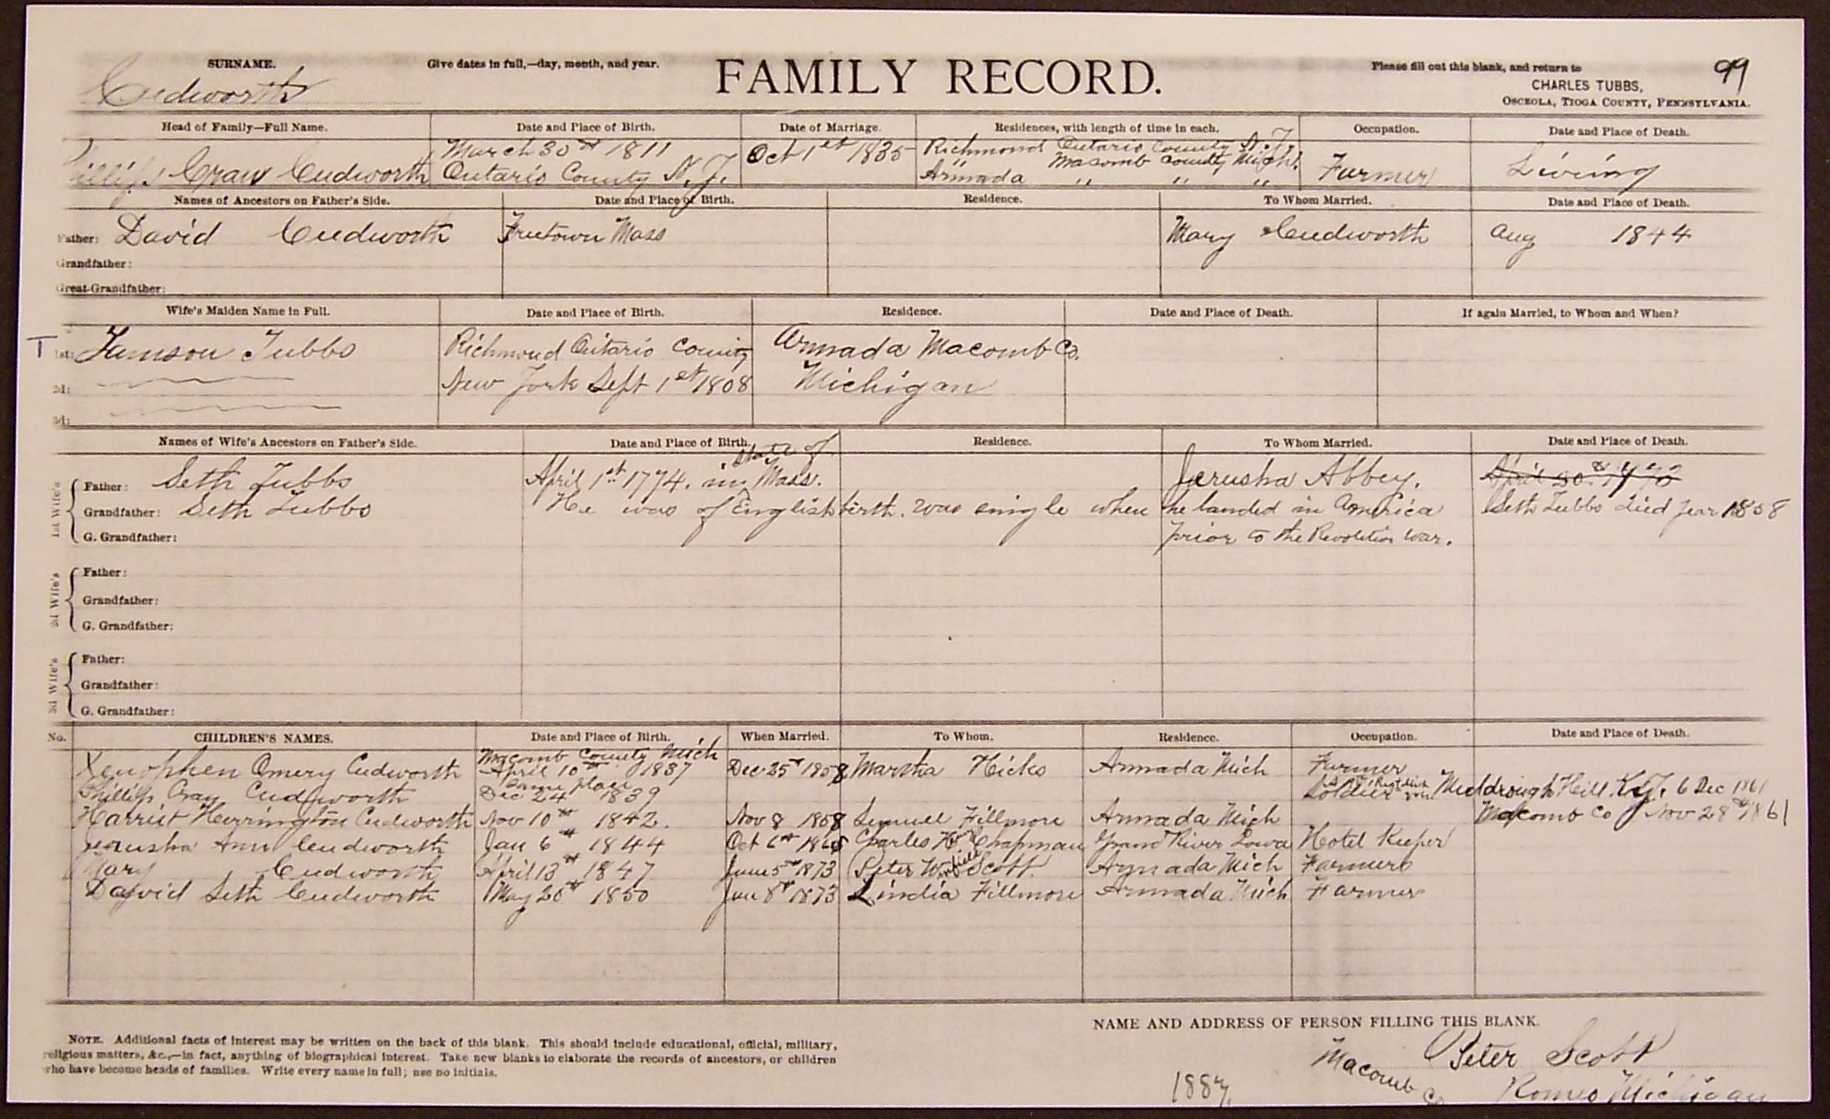 SURNAME. Give dates in full,—day, month, and year. FAMILY RECORD. Please fill out this blank, and return to 99
Cudworth CHARLES TUBBS,
OSCEOLA, TIOGA COUNTY, PENNSYLVANIA.
Head of Family—Full Name. Date and Place of Birth. Date of Marriage. Residences, with length of time in each. Occupation. Date and Place of Death.
March 30th 1811 Oct 1st 1835 Richmond Ontario County N.Y.
Macomb County Mich.
Phillips Gray Cudworth Ontario County N.Y. Armada " " " Farmer Living
Names of Ancestors on Father's Side. Date and Place of Birth. Residence. To Whom Married. Date and Place of Death.
Father: David Cudworth Freetown Mass Mary Cudworth Aug 1844
Grandfather:
Great-Grandfather:
Wife's Maiden Name in Full. Date and Place of Birth. Residence. Date and Place of Death. If again Married, to Whom and When?
T 1st: Tamson Tubbs Richmond Ontario County Armada Macomb Co.
2d: New York Sept 1st 1808 Michigan
3d:
Names of Wife's Ancestors on Father's Side. Date and Place of Birth. Residence. To Whom Married. Date and Place of Death.
State of
1st Wife's Father: Seth Tubbs April 1st 1774. in Mass. Jerusha Abbey.
Grandfather: Seth Tubbs He was of English birth. was single when he landed in America Seth Tubbs died year 1858
G. Grandfather: prior to the Revolution war.
2d Wife's Father:
Grandfather:
G. Grandfather:
3d Wife's Father:
Grandfather:
G. Grandfather:
No. CHILDREN'S NAMES. Date and Place of Birth. When Married. To Whom. Residence. Occupation. Date and Place of Death.
Macomb County Mich
Xenophen Omery Cudworth April 10th 1837 Dec 25th 1858 Martha Hicks Armada Mich Farmer
Same place
Phillips Gray Cudworth Dec 24 1839 Soldier Muldrough Hill. Ky. 6 Dec 1861
Harriet Herrington Cudworth Nov 10th 1842. Nov 8 1858 Lemuel Fillmore Armada Mich Macomb Co Nov 28th 1861
Jerusha Ann Cudworth Jan 6th 1844 Oct 6th Charles H. Chapman Grand River Iowa Hotel Keeper
Mary Cudworth April 13th 1847 June 5th 1873 Peter Winfield Scott Armada Mich Farmers
David Seth Cudworth May 20th 1850 Jan 8th 1873 Lindia Fillmore Armada Mich Farmer
NAME AND ADDRESS OF PERSON FILLING THIS BLANK.
NOTE. Additional facts of interest may be written on the back of this blank. This should include educational, official, military,
religious matters, &c.,—in fact, anything of biographical interest. Take new blanks to elaborate the records of ancestors, or children
who have become heads of families. Write every name in full; use no initials.
Peter Scott
1887. Macomb Co Romeo Michigan